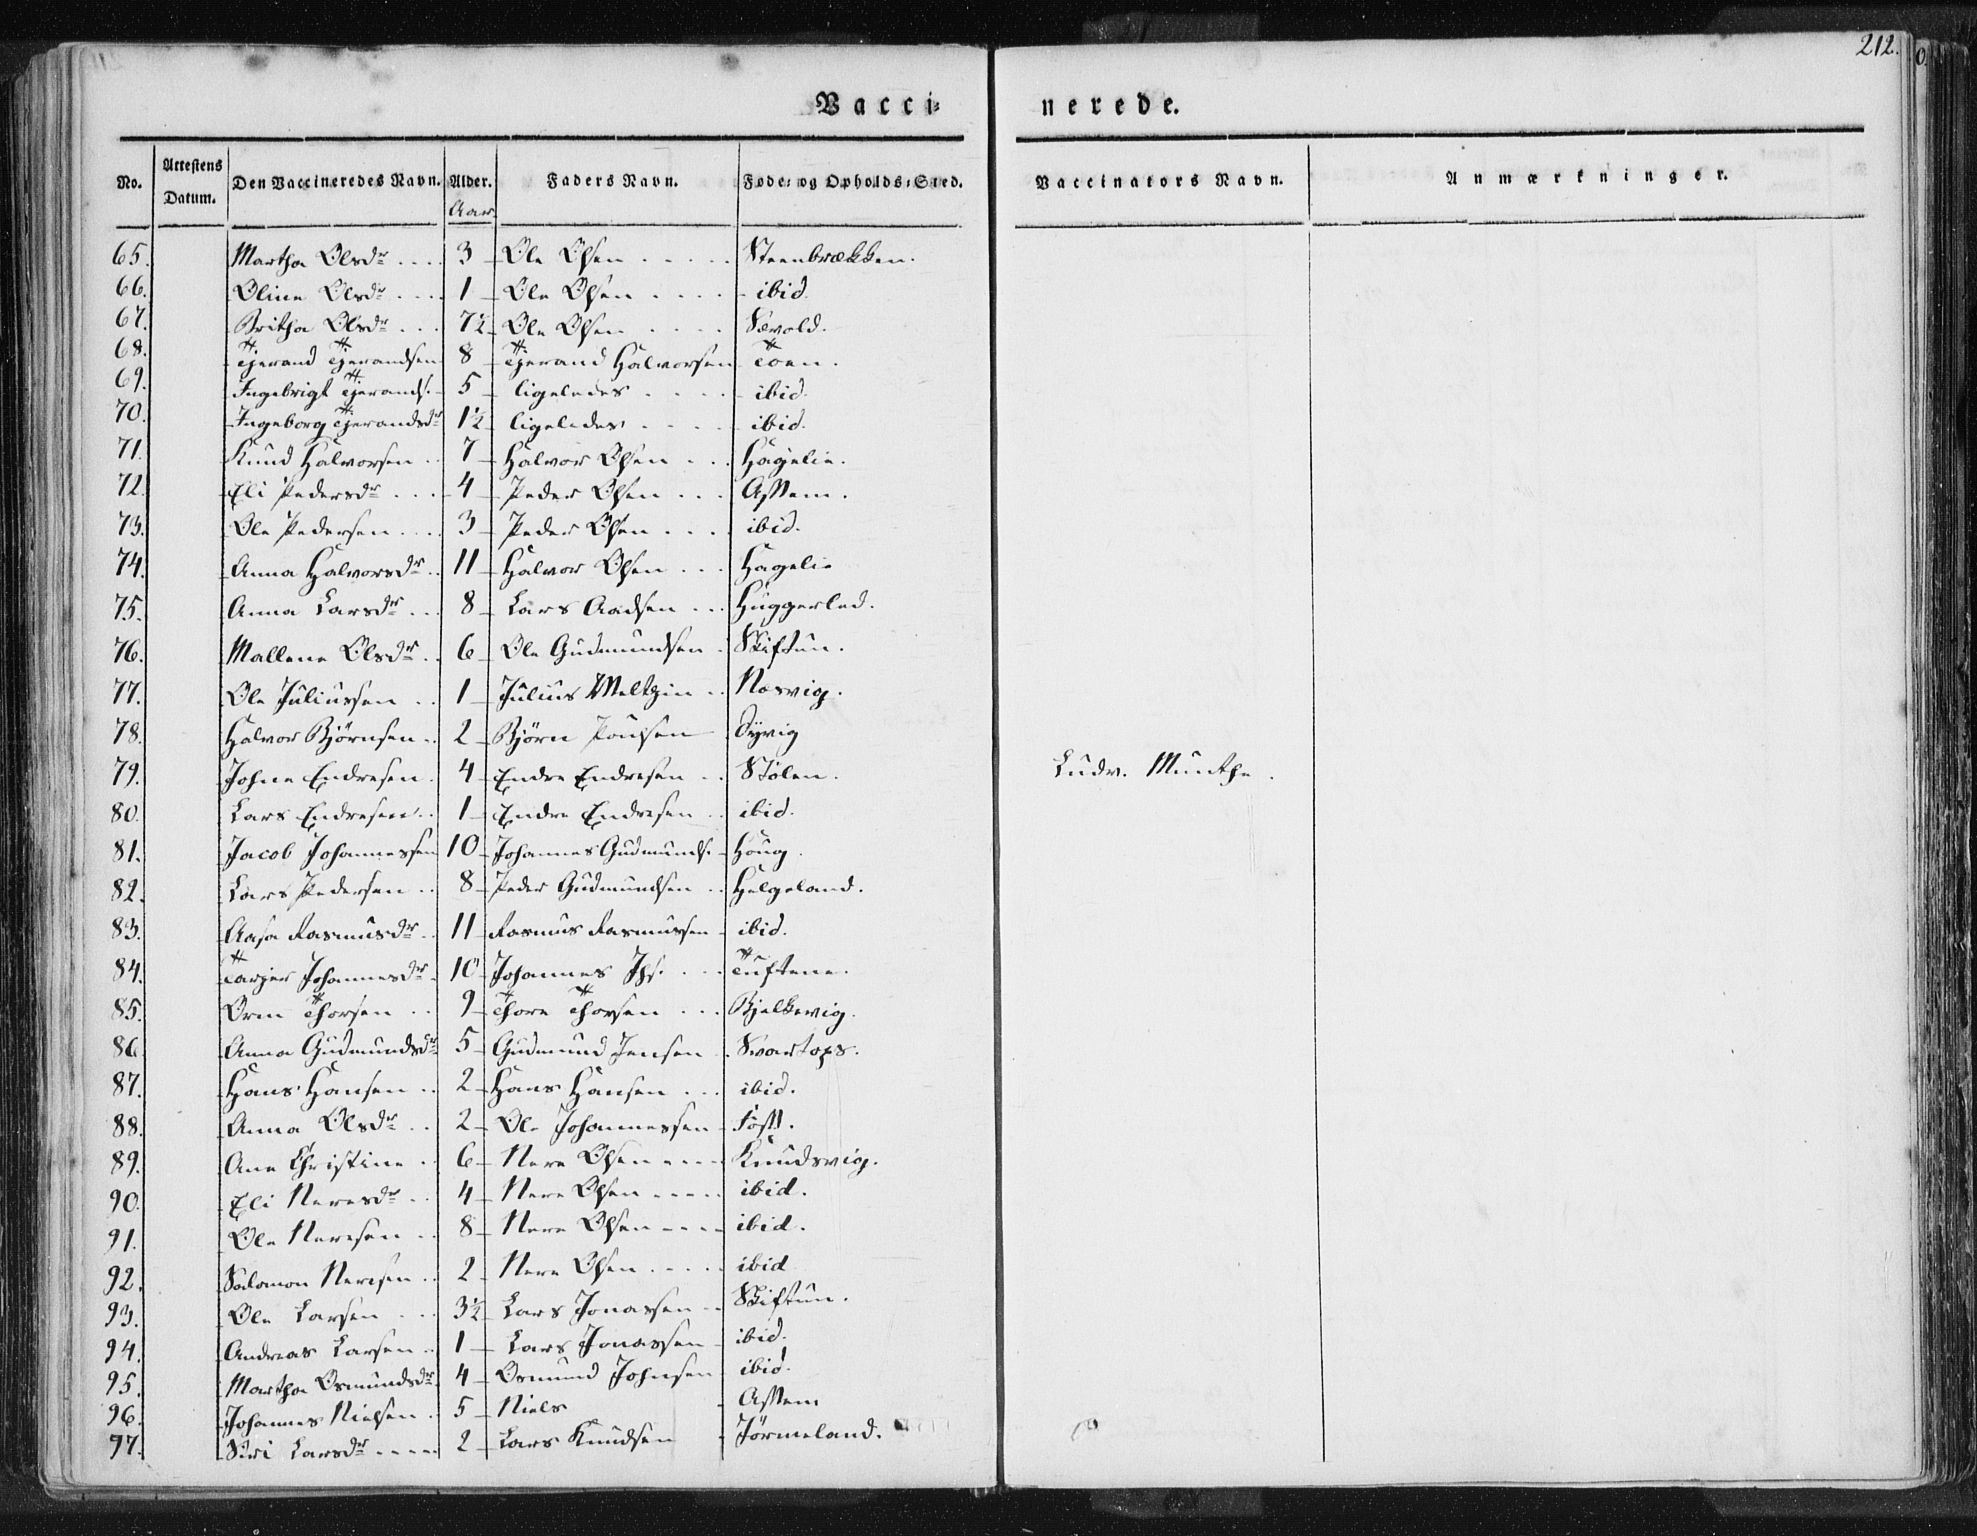 212.
Vacci= nerede.
No. Attestens Datum. Den Vaccineredes Navn. Alder. Faders Navn. Føde- og Opholds-Sted. Vaccinators Navn. Anmærkninger.
Aar
65. Martha Olsdr .... 3 Ole Olsen ..... Steenbrækken.
66. Oline Olsdr .... 1 Ole Olsen .... ibid.
67. Britha Olsdr ... 7½ Ole Olsen .... Sævold.
68. Tjerand Tjerandsen 8 Tjerand Halvorsen Toen.
69. Ingebrigt Tjerands. 5 ligeledes .... ibid.
70. Ingeborg Tjerandsdr 1½ ligeledes ..... ibid.
71. Knud Halvorsen .. 7 Halvor Olsen ... Hagelie.
72. Eli Pedersdr .... 4 Peder Olsen ... Assem.
73. Ole Pedersen .... 3 Peder Olsen .... ibid.
74. Anna Halvorsdr .. 11 Halvor Olsen ... Hagelie
75. Anna Larsdr ... 8 Lars Aadsen ... Huggerled.
76. Mallene Olsdr .. 6 Ole Gudmundsen . Skiftun.
77. Ole Juliussen .. 1 Julius Meltzin .. Næsvig.
78. Halvor Bjørnsen .. 2 Bjørn Poulsen Dyvig
79. Johne Endresen . 4 Endre Endresen .. Stølen. Ludv. Munthe.
80. Lars Endresen .. 1 Endre Endresen .. ibid.
81. Jacob Johannessen 10 Johannes Gudmunds. Houg.
82. Lars Pedersen .. 8 Peder Gudmundsen .. Helgeland.
83. Aasa Rasmusdr .. 11 Rasmus Rasmussen ibid.
84. Tarjer Johannesdr . 10 Johannes Jhs. ... Tuftene.
85. Orm Thorsen .. 9 Thore Thorsen ... Bjelkevig.
86. Anna Gudmundsdr 5 Gudmund Jensen . Svartops.
87. Hans Hansen .. 2 Hans Hansen ... ibid.
88. Anna Olsdr .. 2 Ole Johannessen Foss.
89. Ane Christine . 6 Nere Olsen .... Knudsvig.
90. Eli Neresdr .. 4 Nere Olsen ..... ibid.
91. Ole Neresen .. 8 Nere Olsen .... ibid.
92. Salomon Neresen .. 2 Nere Olsen ..... ibid
93. Ole Larsen ... 3½ Lars Jonassen .. Skiftun.
94. Andreas Larsen .. 1 Lars Jonassen ibid.
95. Martha Osmundsdr 4 Osmund Johnsen ibid.
96. Johannes Nielsen . 5 Niels Assem
97. Siri Larsdr ..... 2 Lars Knudsen Jørmeland.